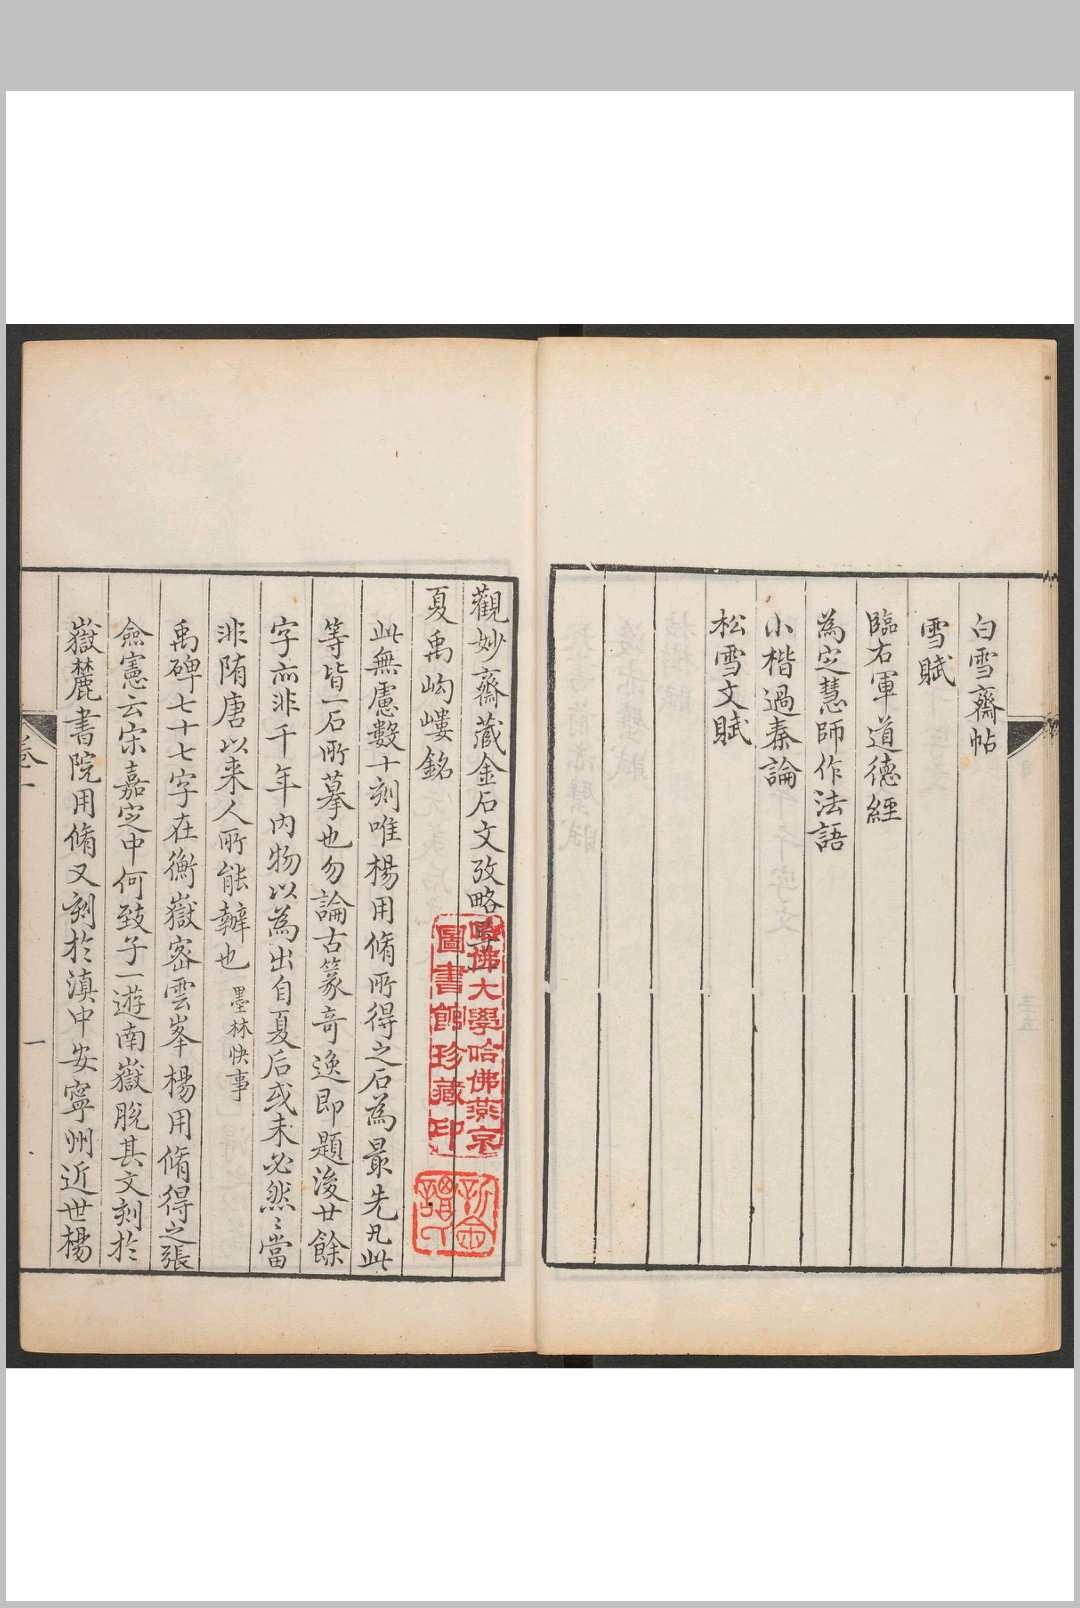 白雪齋帖
雪賦
臨右軍道德經
為定慧師作法語
小楷過秦論
松雪文賦
觀妙齋藏金石文攷略卷一
夏禹岣嶁銘
此無慮數十刻唯楊用脩所得之石為最先凡此
等皆一石所摹也勿論古篆奇逸即題後廿餘
字亦非千年內物以為出自夏后或未必然〻當
非隋唐以来人所能辦也 墨林快事
禹碑七十七字在衡嶽密雲峯楊用脩得之張
僉憲云宋嘉定中何致子一遊南嶽脫其文刻於
嶽麓書院用脩又刻於滇中安寧州近世楊
卷一
一
哈佛大學哈佛燕京
圖書館珍藏印